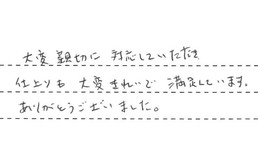 大変親切に対応していただき
仕上りも大変きれいで満足しています。
ありがとうございました。